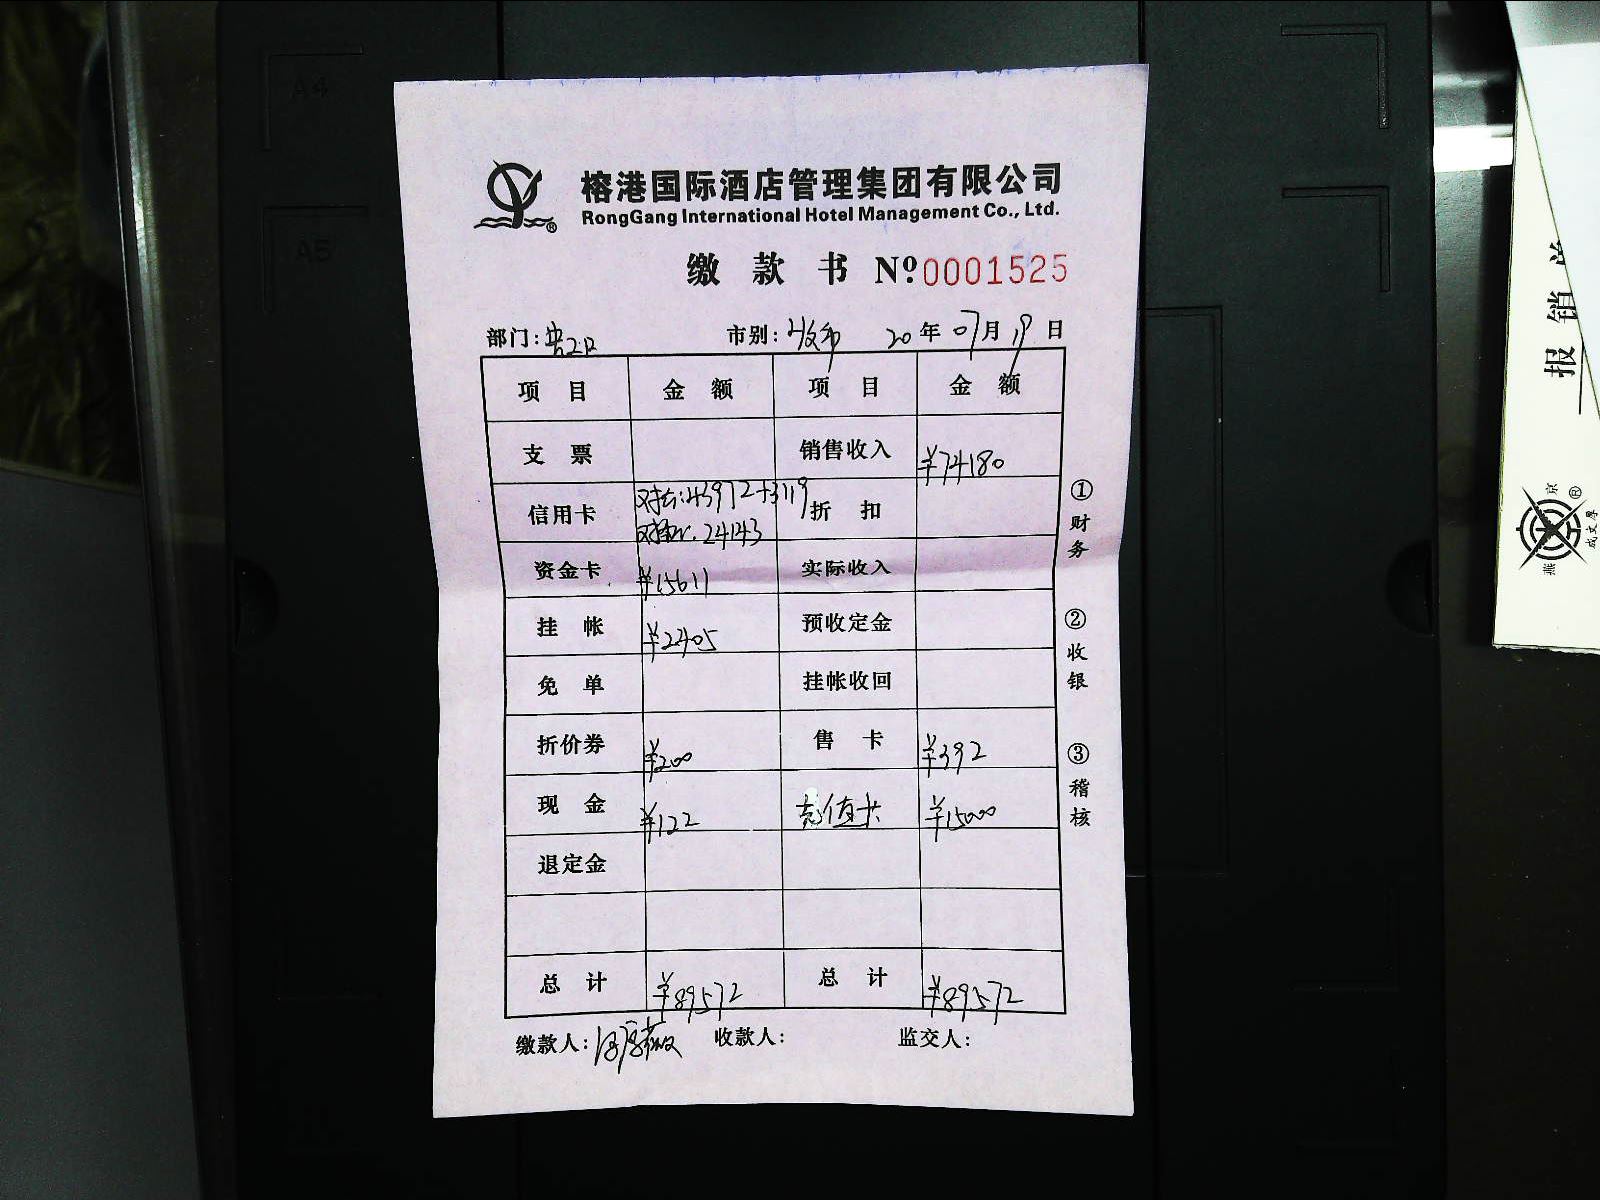 榕港国际酒店管理集团有限公司
RongGang International Hotel Management Co., Ltd.
缴 款 书 Nº 0001525
部门: 市别: 20 年 07 月 19 日
项 目 金 额 项 目 金 额
支 票 销售收入 ¥74180
信用卡 :43972+3119 折 扣
24143
资金卡 ¥15611 实际收入
挂 帐 ¥2405 预收定金
免 单 挂帐收回
折价券 ¥200 售 卡 ¥392
现 金 ¥122 充值卡 ¥15000
退定金
总 计 ¥89572 总 计 ¥89572
缴款人: 收款人: 监交人:
①财务
②收银
③稽核
A4
A5
报销单
燕京
®
成文厚